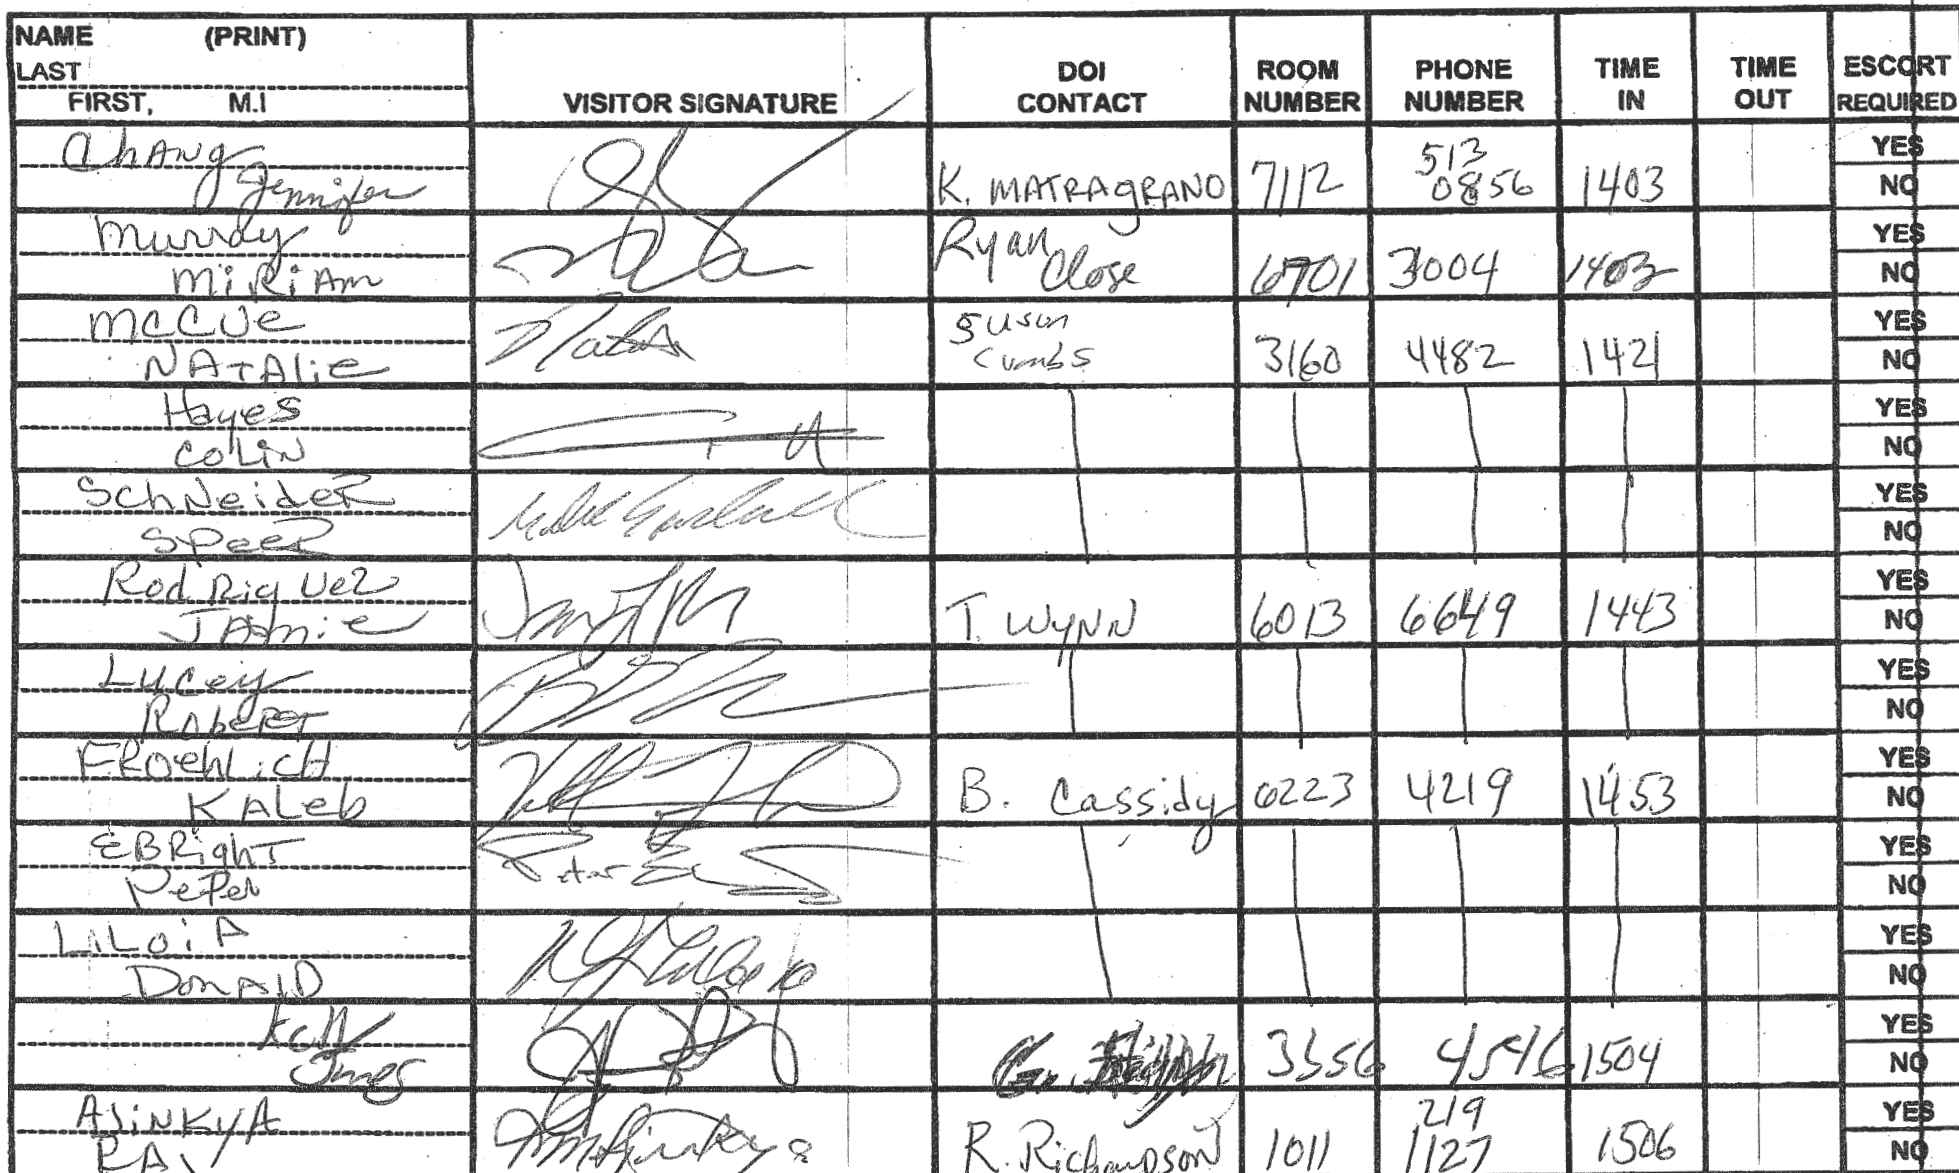 NAME (PRINT)
LAST
FIRST, M.I
VISITOR SIGNATURE
DOI CONTACT
ROOM NUMBER
PHONE NUMBER
TIME IN
TIME OUT
ESCORT REQUIRED
Chang
Jennifer
K. MATRAGRANO 7112 513 0856 1403 YES NO
Murray
MiRiAm
Ryan Close 6701 3004 1403 YES NO
McCue
NATALie
Susan Combs 3160 4482 1421 YES NO
Hayes
COLIN
YES NO
SchNeideR
SPeeR
YES NO
RodRiguez
JAmie
T. WYNN 6013 6649 1443 YES NO
Lucey
RobeRT
YES NO
FRoehLicH
KALeb
B. Cassidy 6223 4219 1453 YES NO
EBRighT
PeTer
YES NO
LiLoiA
DonALD
YES NO
3356 4546 1504 YES NO
AJiNKYA
RAJ
R. Richardson 1011 219 1127 1506 YES NO